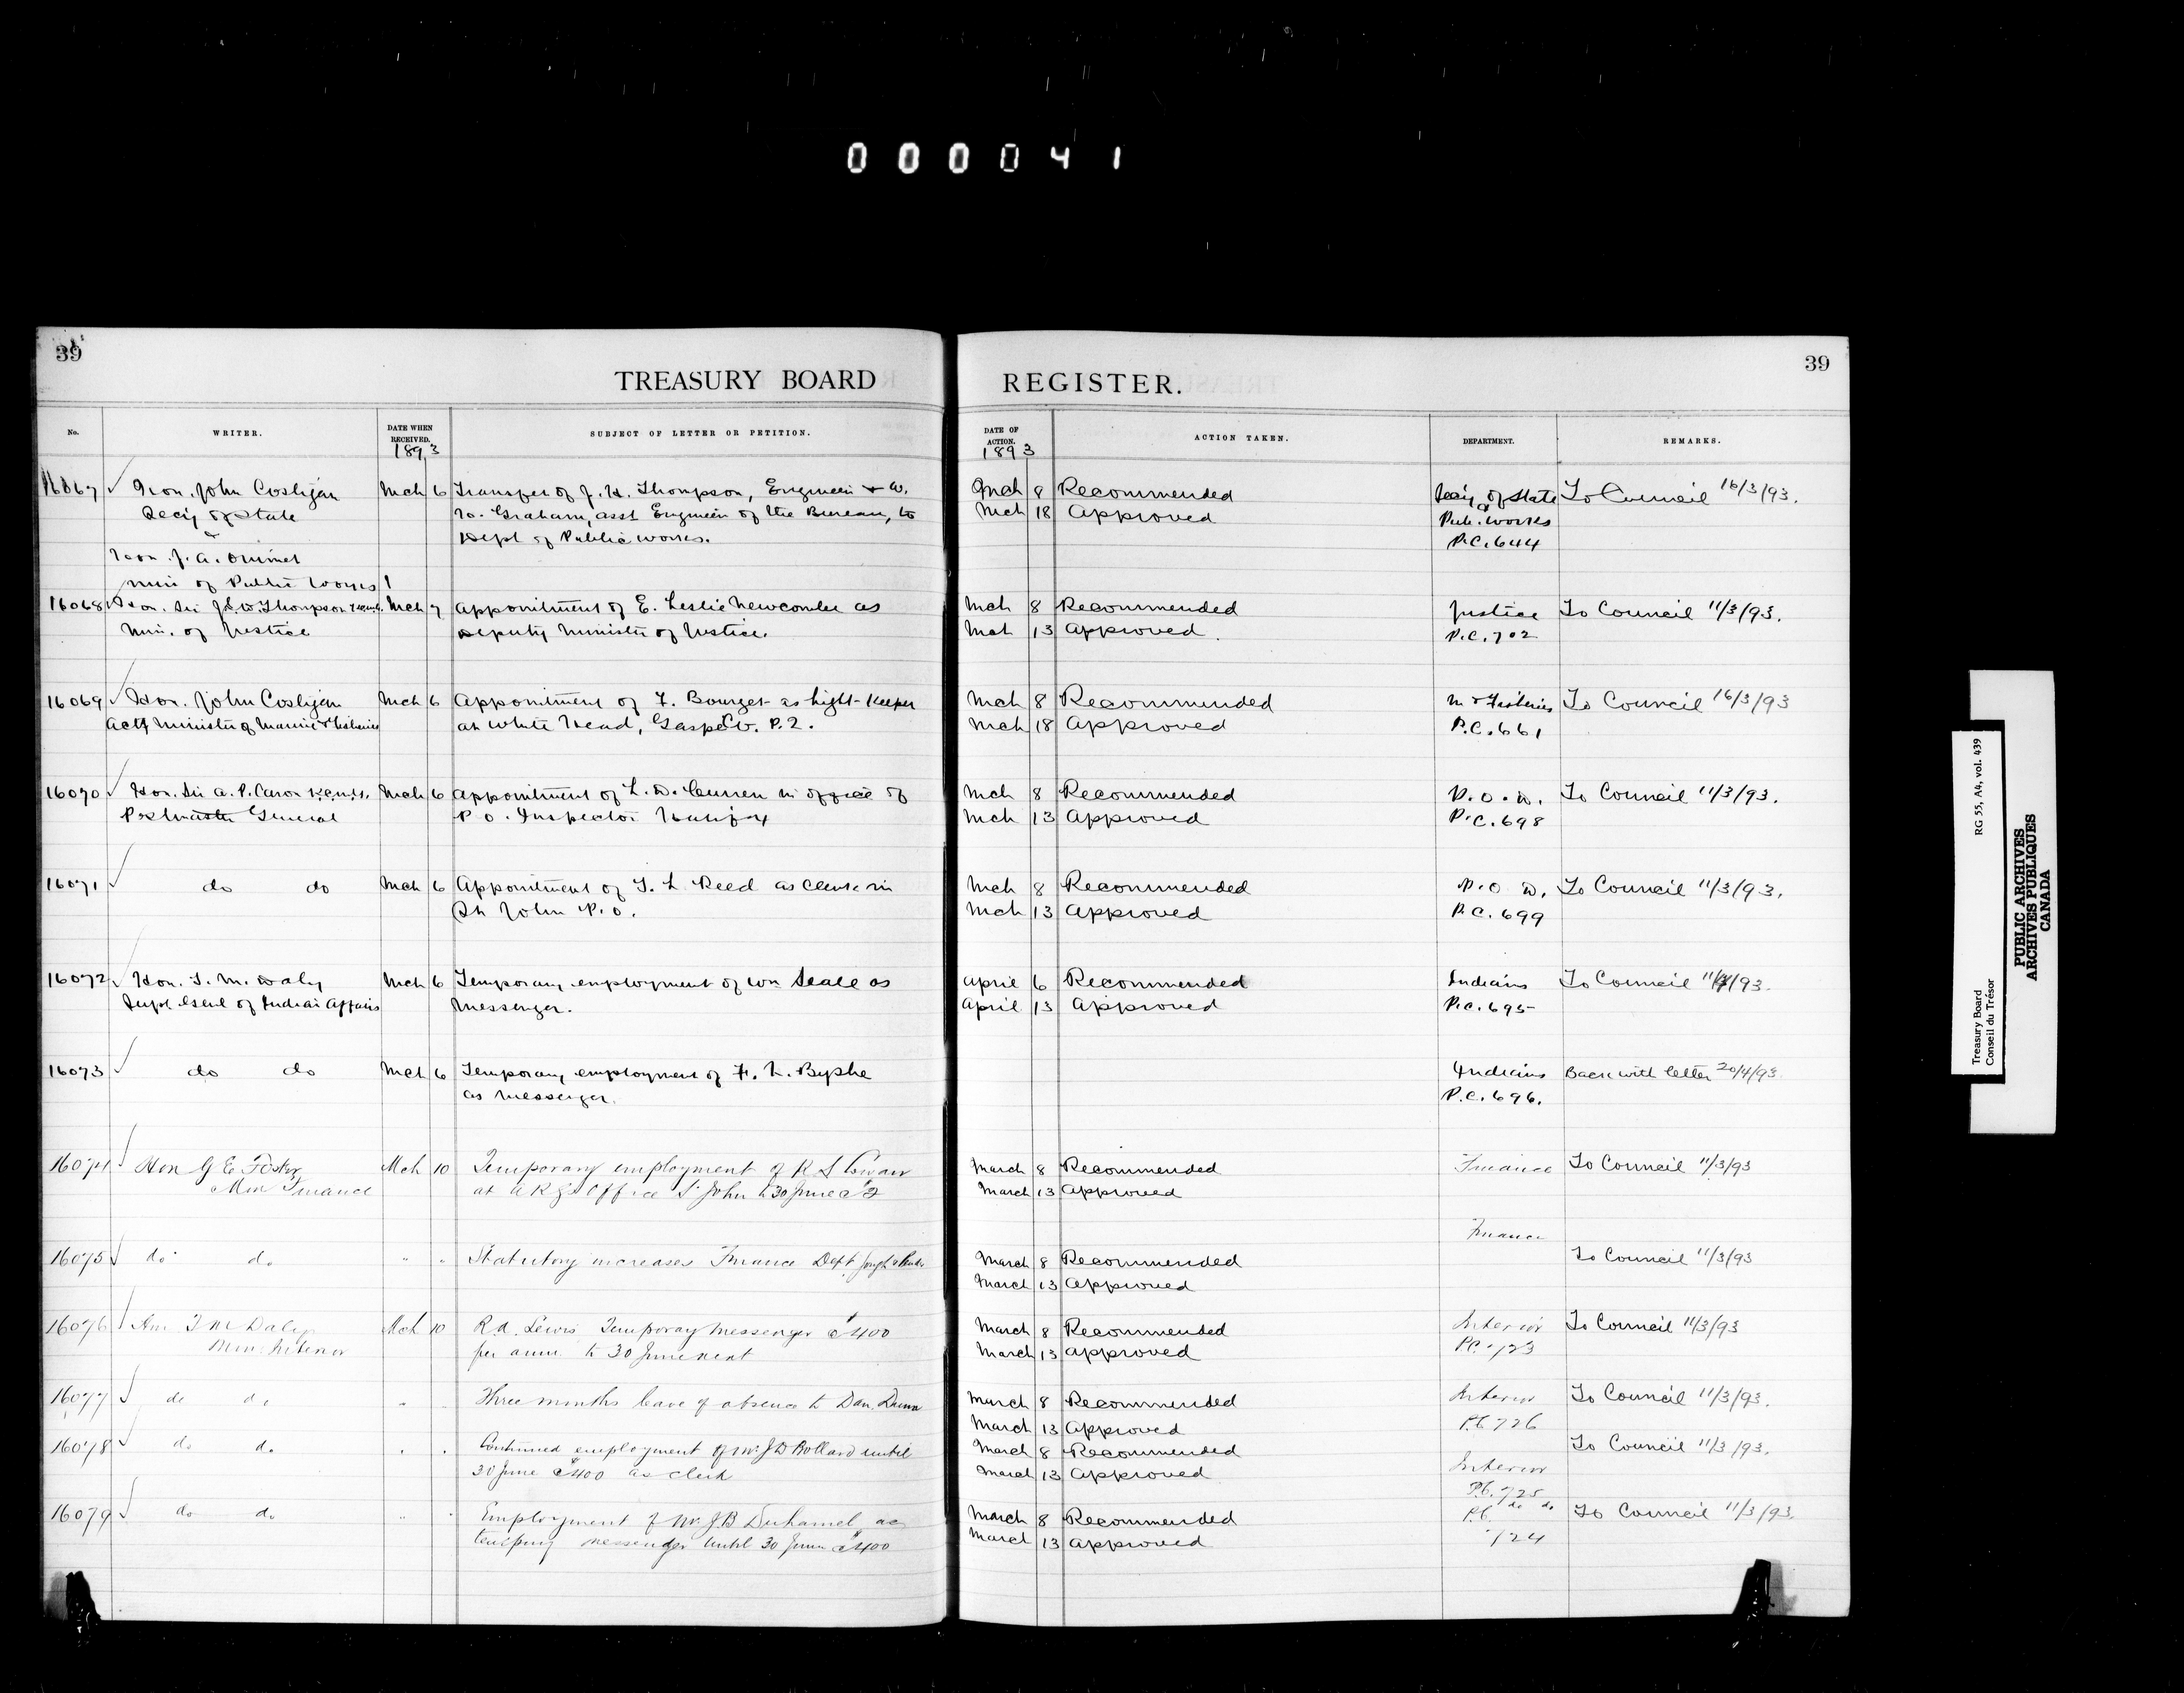 000041
39
TREASURY BOARD
No.
WRITER.
DATE WHEN RECEIVED.
1893
SUBJECT OF LETTER OR PETITION.
16067 Hon. John Costigan Mch 6 Transfer of J. H. Thompson, Engineer & W.
Sec'y of State Graham, asst Engineer of the Bureau, to
Dept of Public Works.
Hon. J. A. Ouimet
Min of Public Works
16068 Hon. Sir J. S. D. Thompson Mch 7 Appointment of E. Leslie Newcombe as
Min. of Justice Deputy Minister of Justice.
16069 Hon. John Costigan Mch 6 Appointment of F. Bourget as Light-Keeper
Act'g Minister of Marine & Fisheries at White Head, Gaspé Co. P.Q.
16070 Hon. Sir A. P. Caron K.C.M.G. Mch 6 Appointment of L. D. Curren in office of
Postmaster General P.O. Inspector Halifax
16071 do do Mch 6 Appointment of T. L. Reed as Clerk in
St John P.O.
16072 Hon. T. M. Daly Mch 6 Temporary employment of Wm Seale as
Supt. Genl of Indian Affairs Messenger.
16073 do do Mch 6 Temporary employment of F. H. Byshe
as messenger.
16074 Hon G E Foster Mch 10 Temporary employment of R S Cowan
Min Finance at A R G's Office St John to 30 June
16075 do do " " Statutory increases Finance Dept
16076 Hon T M Daly Mch 10 R. A. Lewis Temporary Messenger @ $400
Min Interior per ann. to 30 June next
16077 do do " Three months leave of absence to Dan. Dunn
16078 do do " " Continued employment of Mr J D Bollard until
30 June @ $400 as clerk
16079 do do " " Employment of Mr J B Duhamel as
tempory messenger until 30 June @ $400
39
REGISTER.
DATE OF ACTION.
1893
ACTION TAKEN.
DEPARTMENT.
REMARKS.
Mch 8 Recommended Sec'y of State To Council 16/3/93.
Mch 18 Approved & Pub. Works
P.C. 644
Mch 8 Recommended Justice To Council 11/3/93.
Mch 13 Approved. P.C. 702
Mch 8 Recommended M & Fisheries To Council 16/3/93
Mch 18 Approved P.C. 661
Mch 8 Recommended P.O.D. To Council 11/3/93.
Mch 13 Approved P.C. 698
Mch 8 Recommended P.O.D. To Council 11/3/93.
Mch 13 Approved P.C. 699
April 6 Recommended Indians To Council 11/4/93.
April 13 Approved P.C. 695
Indians Back with letter 20/4/93
P.C. 696.
March 8 Recommended Finance To Council 11/3/93
March 13 Approved
Finance
March 8 Recommended To Council 11/3/93
March 13 Approved
March 8 Recommended Interior To Council 11/3/93
March 13 Approved P.C. 723
March 8 Recommended Interior To Council 11/3/93.
March 13 Approved P.C. 726
March 8 Recommended To Council 11/3/93.
March 13 Approved Interior
P.C. 725
March 8 Recommended P.C. do do To Council 11/3/93.
March 13 Approved 724
Treasury Board RG 55, A4, vol. 439
Conseil du Trésor
PUBLIC ARCHIVES
ARCHIVES PUBLIQUES
CANADA